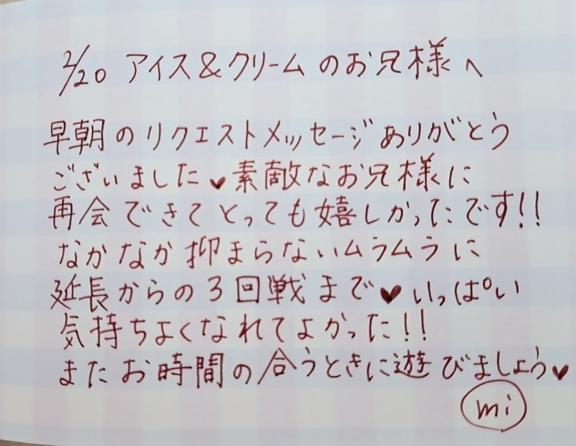 2/20 アイス&クリームのお兄様へ
早朝のリクエストメッセージありがとう
ございました♥素敵なお兄様に
再会できてとっても嬉しかったです!!
なかなか抑まらないムラムラに
延長からの3回戦まで♥いっぱい
気持ちよくなれてよかった!!
またお時間の合うときに遊びましょう♥
mi